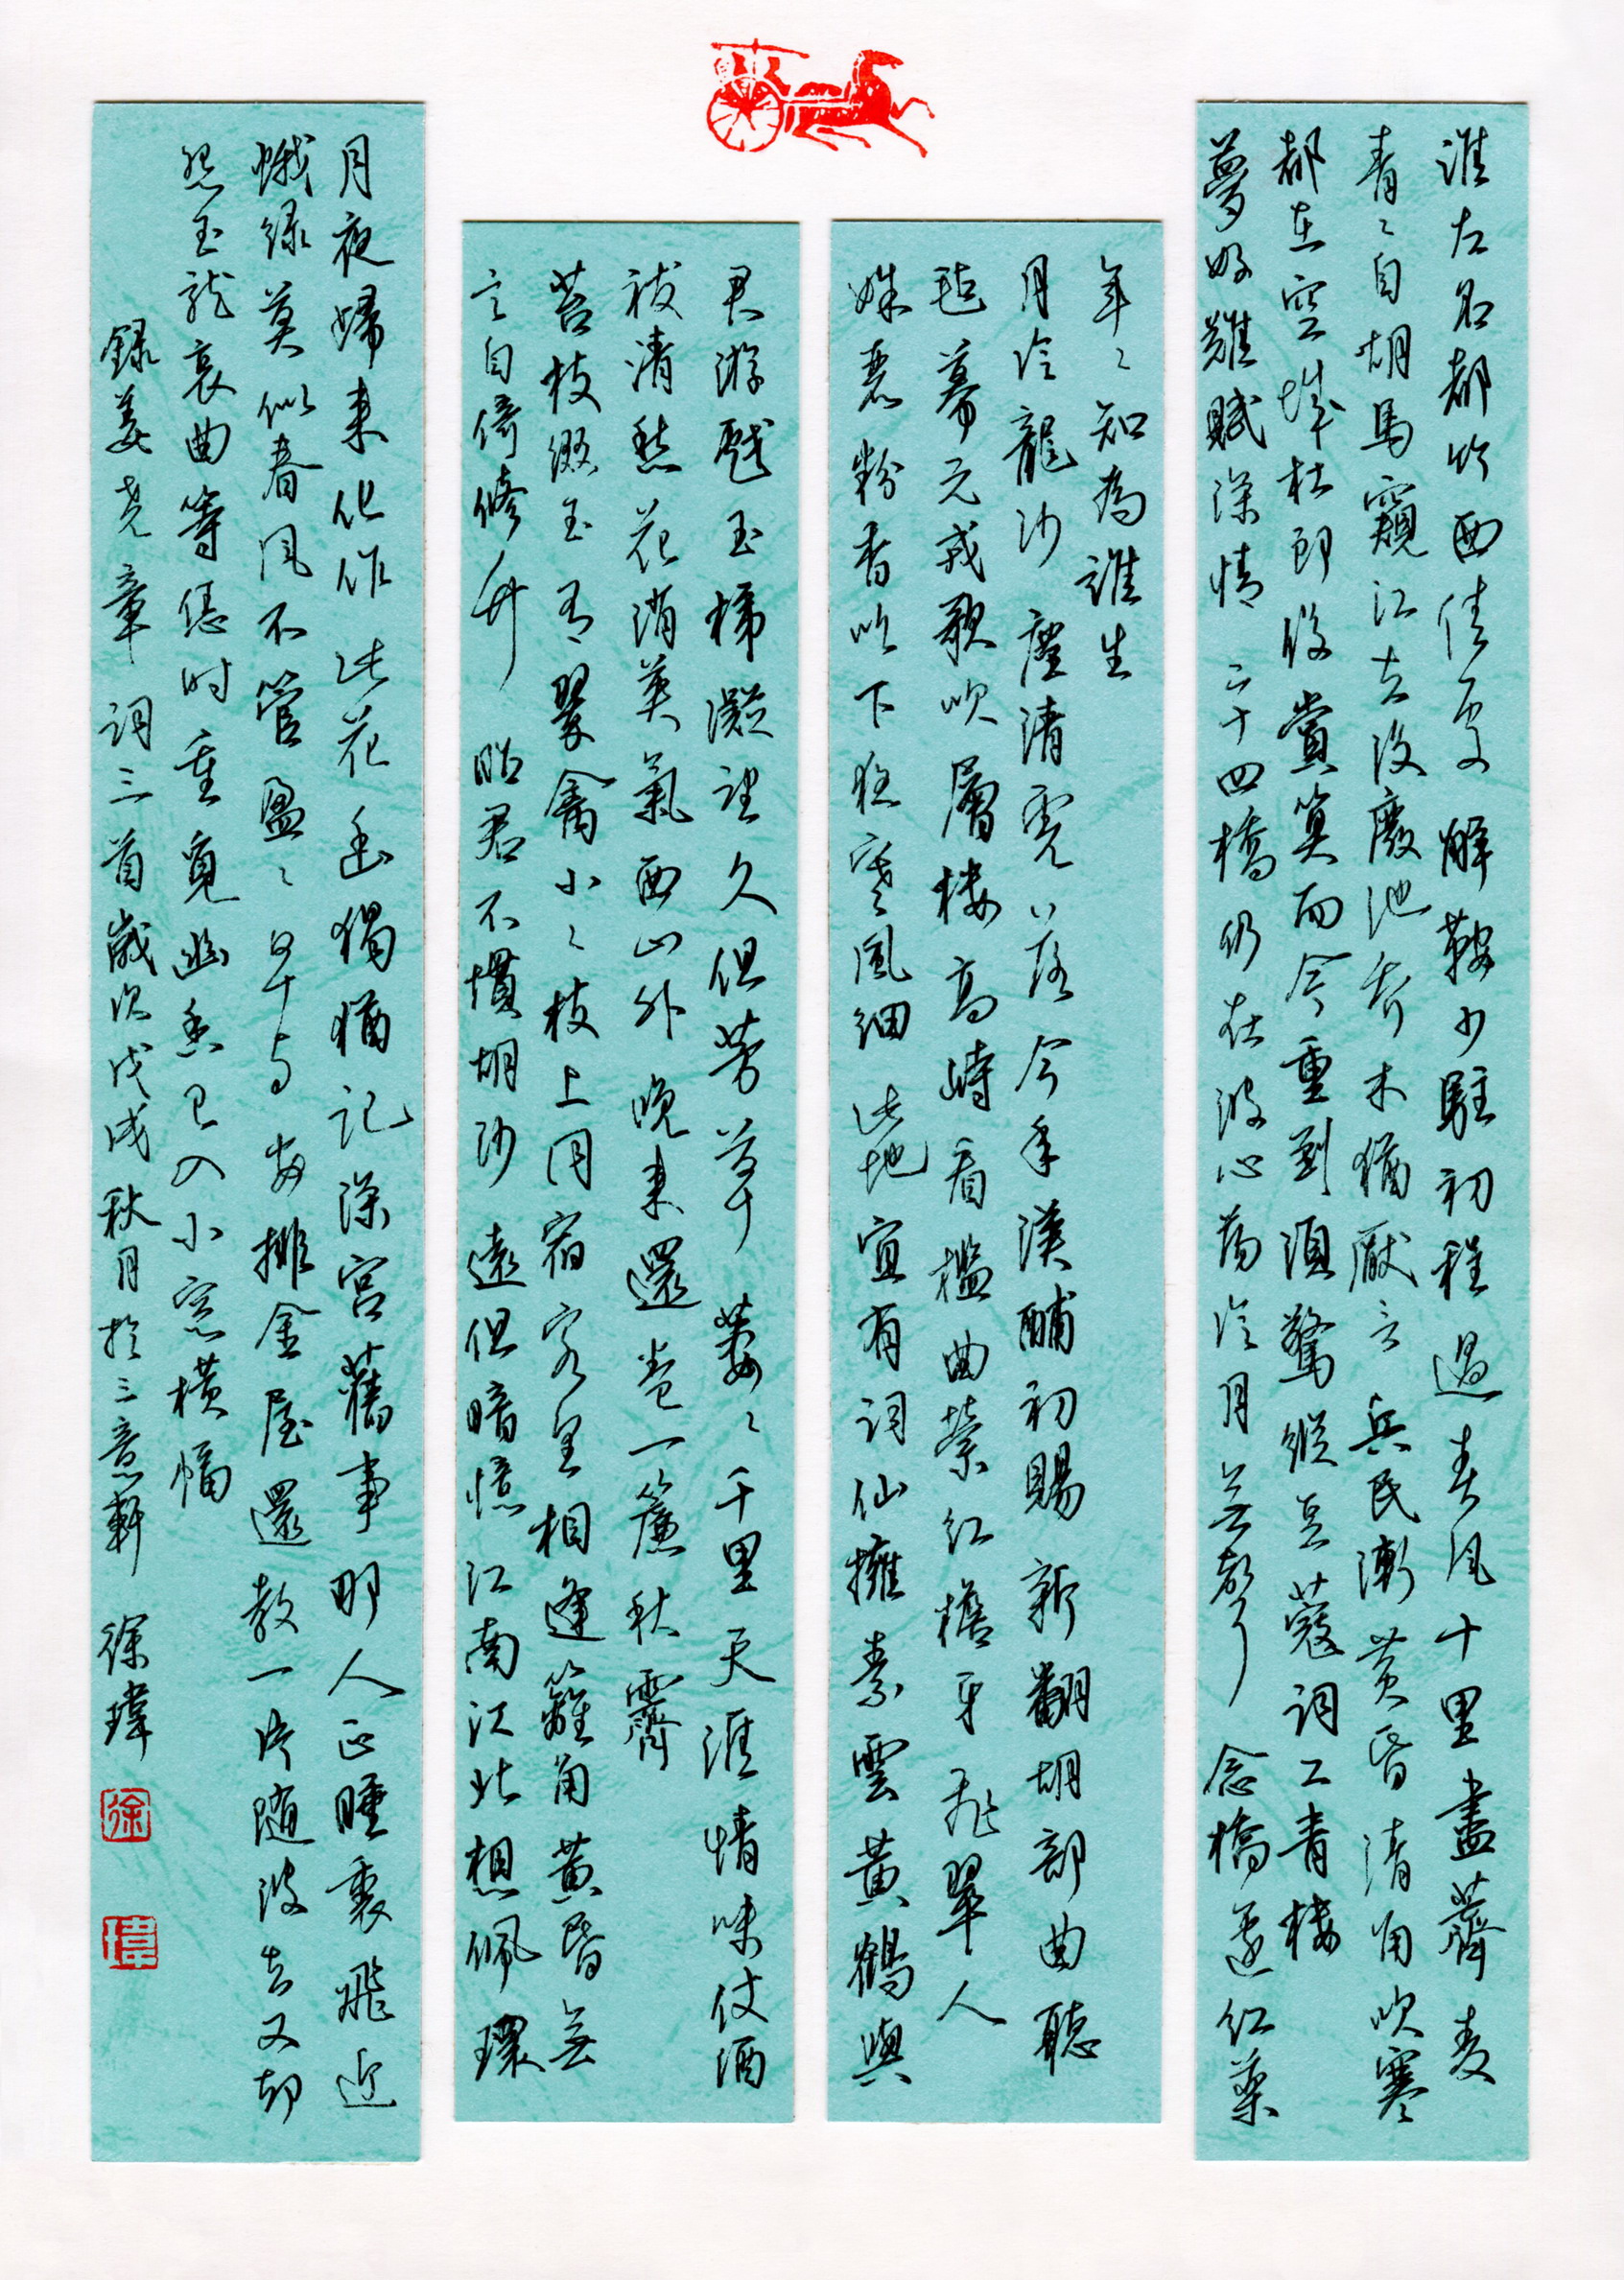 淮左名都竹西佳處解鞍少駐初程過春風十里盡薺麥
青〻自胡馬窺江去後廢池喬木猶厭言兵民漸黃昏清角吹寒
都在空城杜郎俊賞算而今重到須驚縱豆蔻詞工青樓
夢好難賦深情 二十四橋仍在波心蕩冷月無聲 念橋邊紅藥
年〻知為誰生
月冷龍沙塵清虎落今年漢酺初賜新翻胡部曲聽
氈幕元戎歌吹層樓高峙看檻曲縈紅檐牙飛翠人
姝麗粉香吹下夜寒風細 此地宜有詞仙擁素雲黃鶴與
君游戲玉梯凝望久但芳草萋〻千里天涯情味仗酒
祓清愁花消英氣西山外晚來還卷一簾秋霽
苔枝綴玉有翠禽小〻枝上同宿客里相逢籬角黃昏無
言自倚修竹 昭君不慣胡沙遠但暗憶江南江北想佩環
月夜歸來化作此花幽獨猶記深宮舊事那人正睡裏飛近
蛾綠莫似春風不管盈〻早與安排金屋還教一片随波去又却
怨玉龍哀曲等恁時重覓幽香已入小窓橫幅
録姜堯章詞三首歲次戊戌秋月於三意軒 徐瑋
徐
瑋